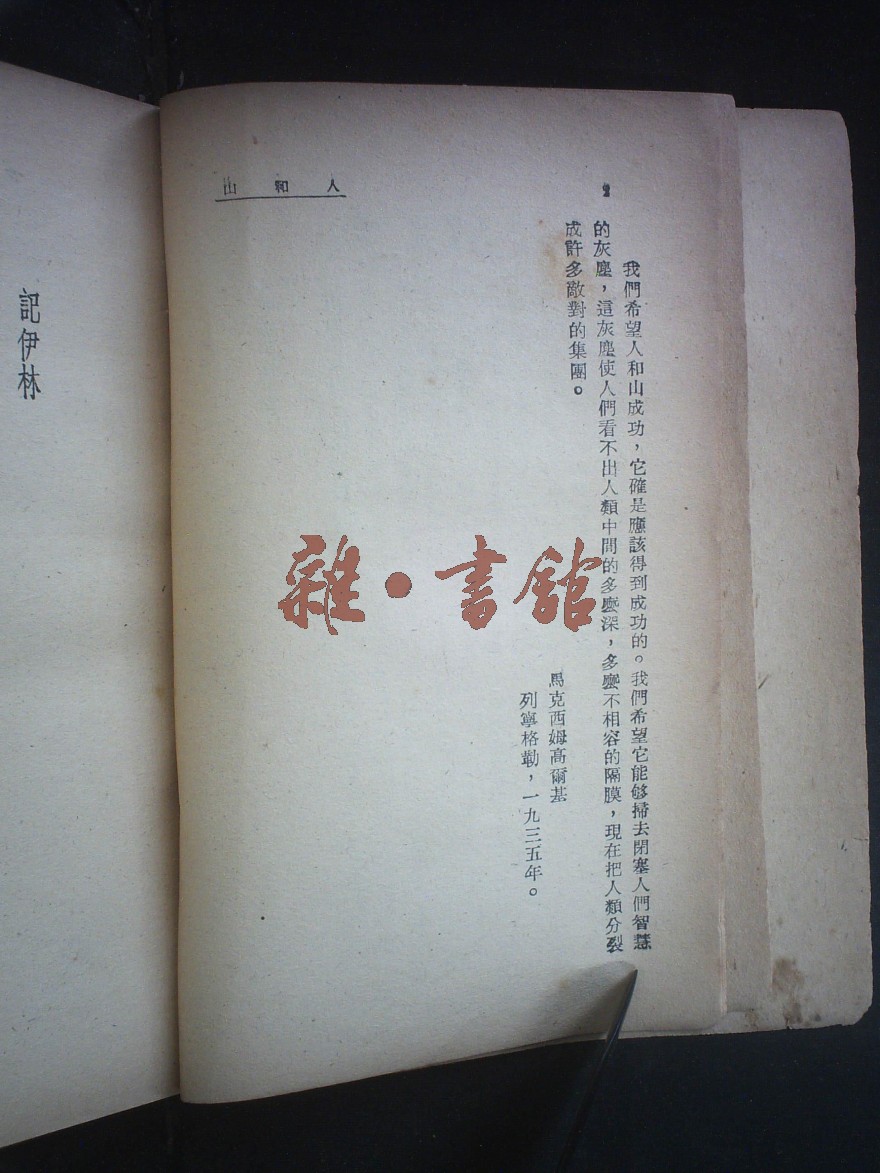 人和山
2
我們希望人和山成功，它確是應該得到成功的。我們希望它能够掃去閉塞人們智慧
的灰塵，這灰塵使人們看不出人類中間的多麼深，多麼不相容的隔膜，現在把人類分裂
成許多敵對的集團。
馬克西姆高爾基
列寧格勒，一九三五年。
記伊林
雜·書館